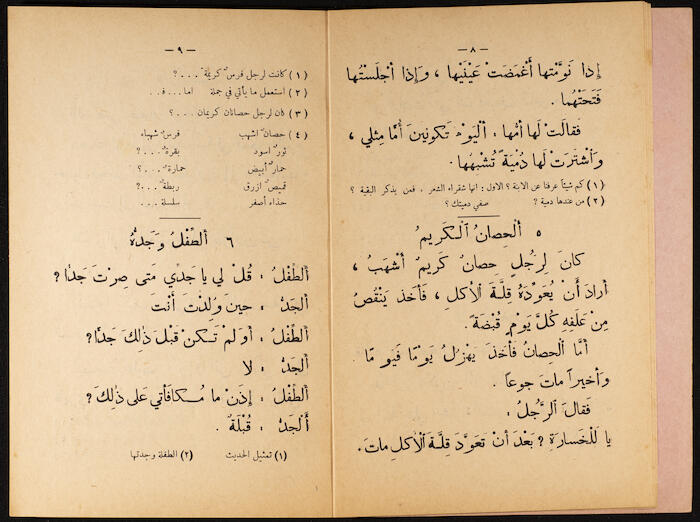 — ٨ —
إِذا نَوَّمْتها أَغْمَضَتْ عَيْنَيْها ، وَإِذا أَجْلَسْتُها
فَتَحَتْهُما .
فقالَتْ لَها أُمُّها : أَلْيَوْمَ تَكونينَ أُمًّا مِثْلي ،
وَاشْتَرَتْ لَها دُمْيَةً تُشْبِهُها .
(١) كم شيئاً عرفنا عن الابنة ؟ الاول : انها شقراء الشعر . فمن يذكر البقية ؟
(٢) من عندها دمية ؟ صفي دميتك ؟
٥ أَلْحِصانُ الْكَريمُ
كانَ لِرَجُلٍ حِصانٌ كَريمٌ أَشْهَبُ ،
أَرادَ أَنْ يُعَوِّدَهُ قِلَّةَ الْأَكْلِ ، فَأَخَذَ يَنْقُصُ
مِنْ عَلَفِهِ كُلَّ يَوْمٍ قُبْضَةً .
أَمَّا الْحِصانُ فَأَخَذَ يَهْزُلُ يَوْمًا فَيَوْمًا .
وَأَخيراً ماتَ جوعاً .
فَقالَ الرَّجُلُ :
يا لَلْخَسارَةِ ؟ بَعْدَ أَنْ تَعَوَّدَ قِلَّةَ الْأَكْلِ ماتَ .
— ٩ —
(١) كانت لرجل فرسٌ كريمةٌ . . . ؟
(٢) استعمل ما يأتي في جملة اما . . . فـ . .
(٣) كان لرجل حصانان كريمان . . . ؟
(٤) حصانٌ اشهب فرسٌ شهباء
ثورٌ اسود بقرةٌ . . . ؟
حمارٌ أبيض حمارةٌ . . . ؟
قميصٌ ازرق ربطةٌ . . . ؟
حذاء أصفر سلسلة . . .
٦ أَلطِّفْلُ وَجَدُّهُ
أَلطِّفْلُ : قُلْ لي يا جَدِّي مَتى صِرْتَ جَدًّا ؟
أَلْجَدُّ : حينَ وُلِدْتَ أَنْتَ
أَلطِّفْلُ : أَوَلَمْ تَكُنْ قَبْلَ ذٰلِكَ جَدًّا ؟
أَلْجَدُّ : لا
أَلطِّفْلُ : إِذَنْ ما مُكافَأَتي عَلى ذٰلِكَ ؟
أَلْجَدُّ : قُبْلَةٌ .
(١) تمثيل الحديث (٢) الطفلة وجدتها